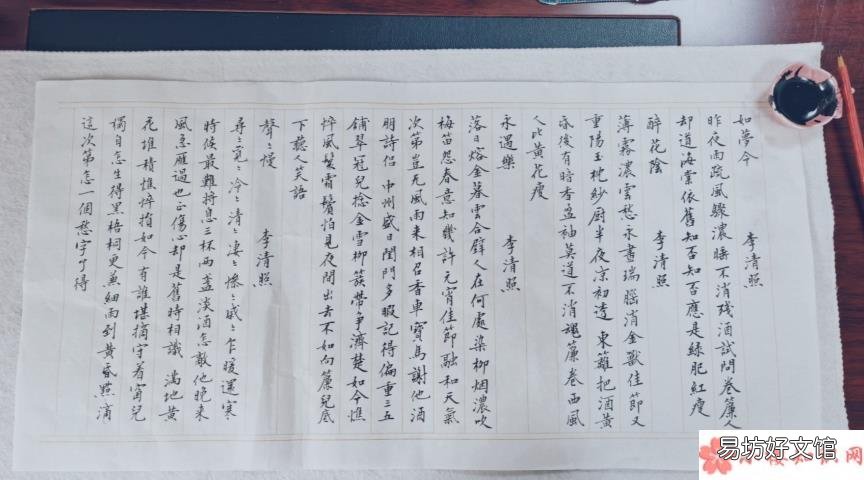 如夢令　李清照
昨夜雨疏風驟濃睡不消殘酒試問卷簾人
却道海棠依舊知否知否應是綠肥紅瘦
醉花陰　李清照
薄霧濃雲愁永晝瑞腦消金獸佳節又
重陽玉枕紗厨半夜凉初透東籬把酒黄
昏後有暗香盈袖莫道不消魂簾卷西風
人比黄花瘦
永遇樂　李清照
落日熔金暮雲合璧人在何處染柳烟濃吹
梅笛怨春意知幾許元宵佳節融和天氣
次第豈无風雨来相召香車寶馬謝他酒
朋詩侣 中州盛日閨門多暇記得偏重三五
鋪翠冠兒捻金雪柳簇帶争濟楚如今憔
悴風鬟霜鬢怕見夜間出去不如向簾兒底
下聽人笑語
聲〻慢　李清照
尋〻覓〻冷〻清〻凄〻慘〻戚〻乍暖還寒
時候最難將息三杯兩盞淡酒怎敵他晚来
風急雁過也正傷心却是舊時相識 滿地黄
花堆積憔悴損如今有誰堪摘守着窗兒
獨自怎生得黑梧桐更兼細雨到黄昏點滴
這次第怎一個愁字了得
易坊好文馆
网